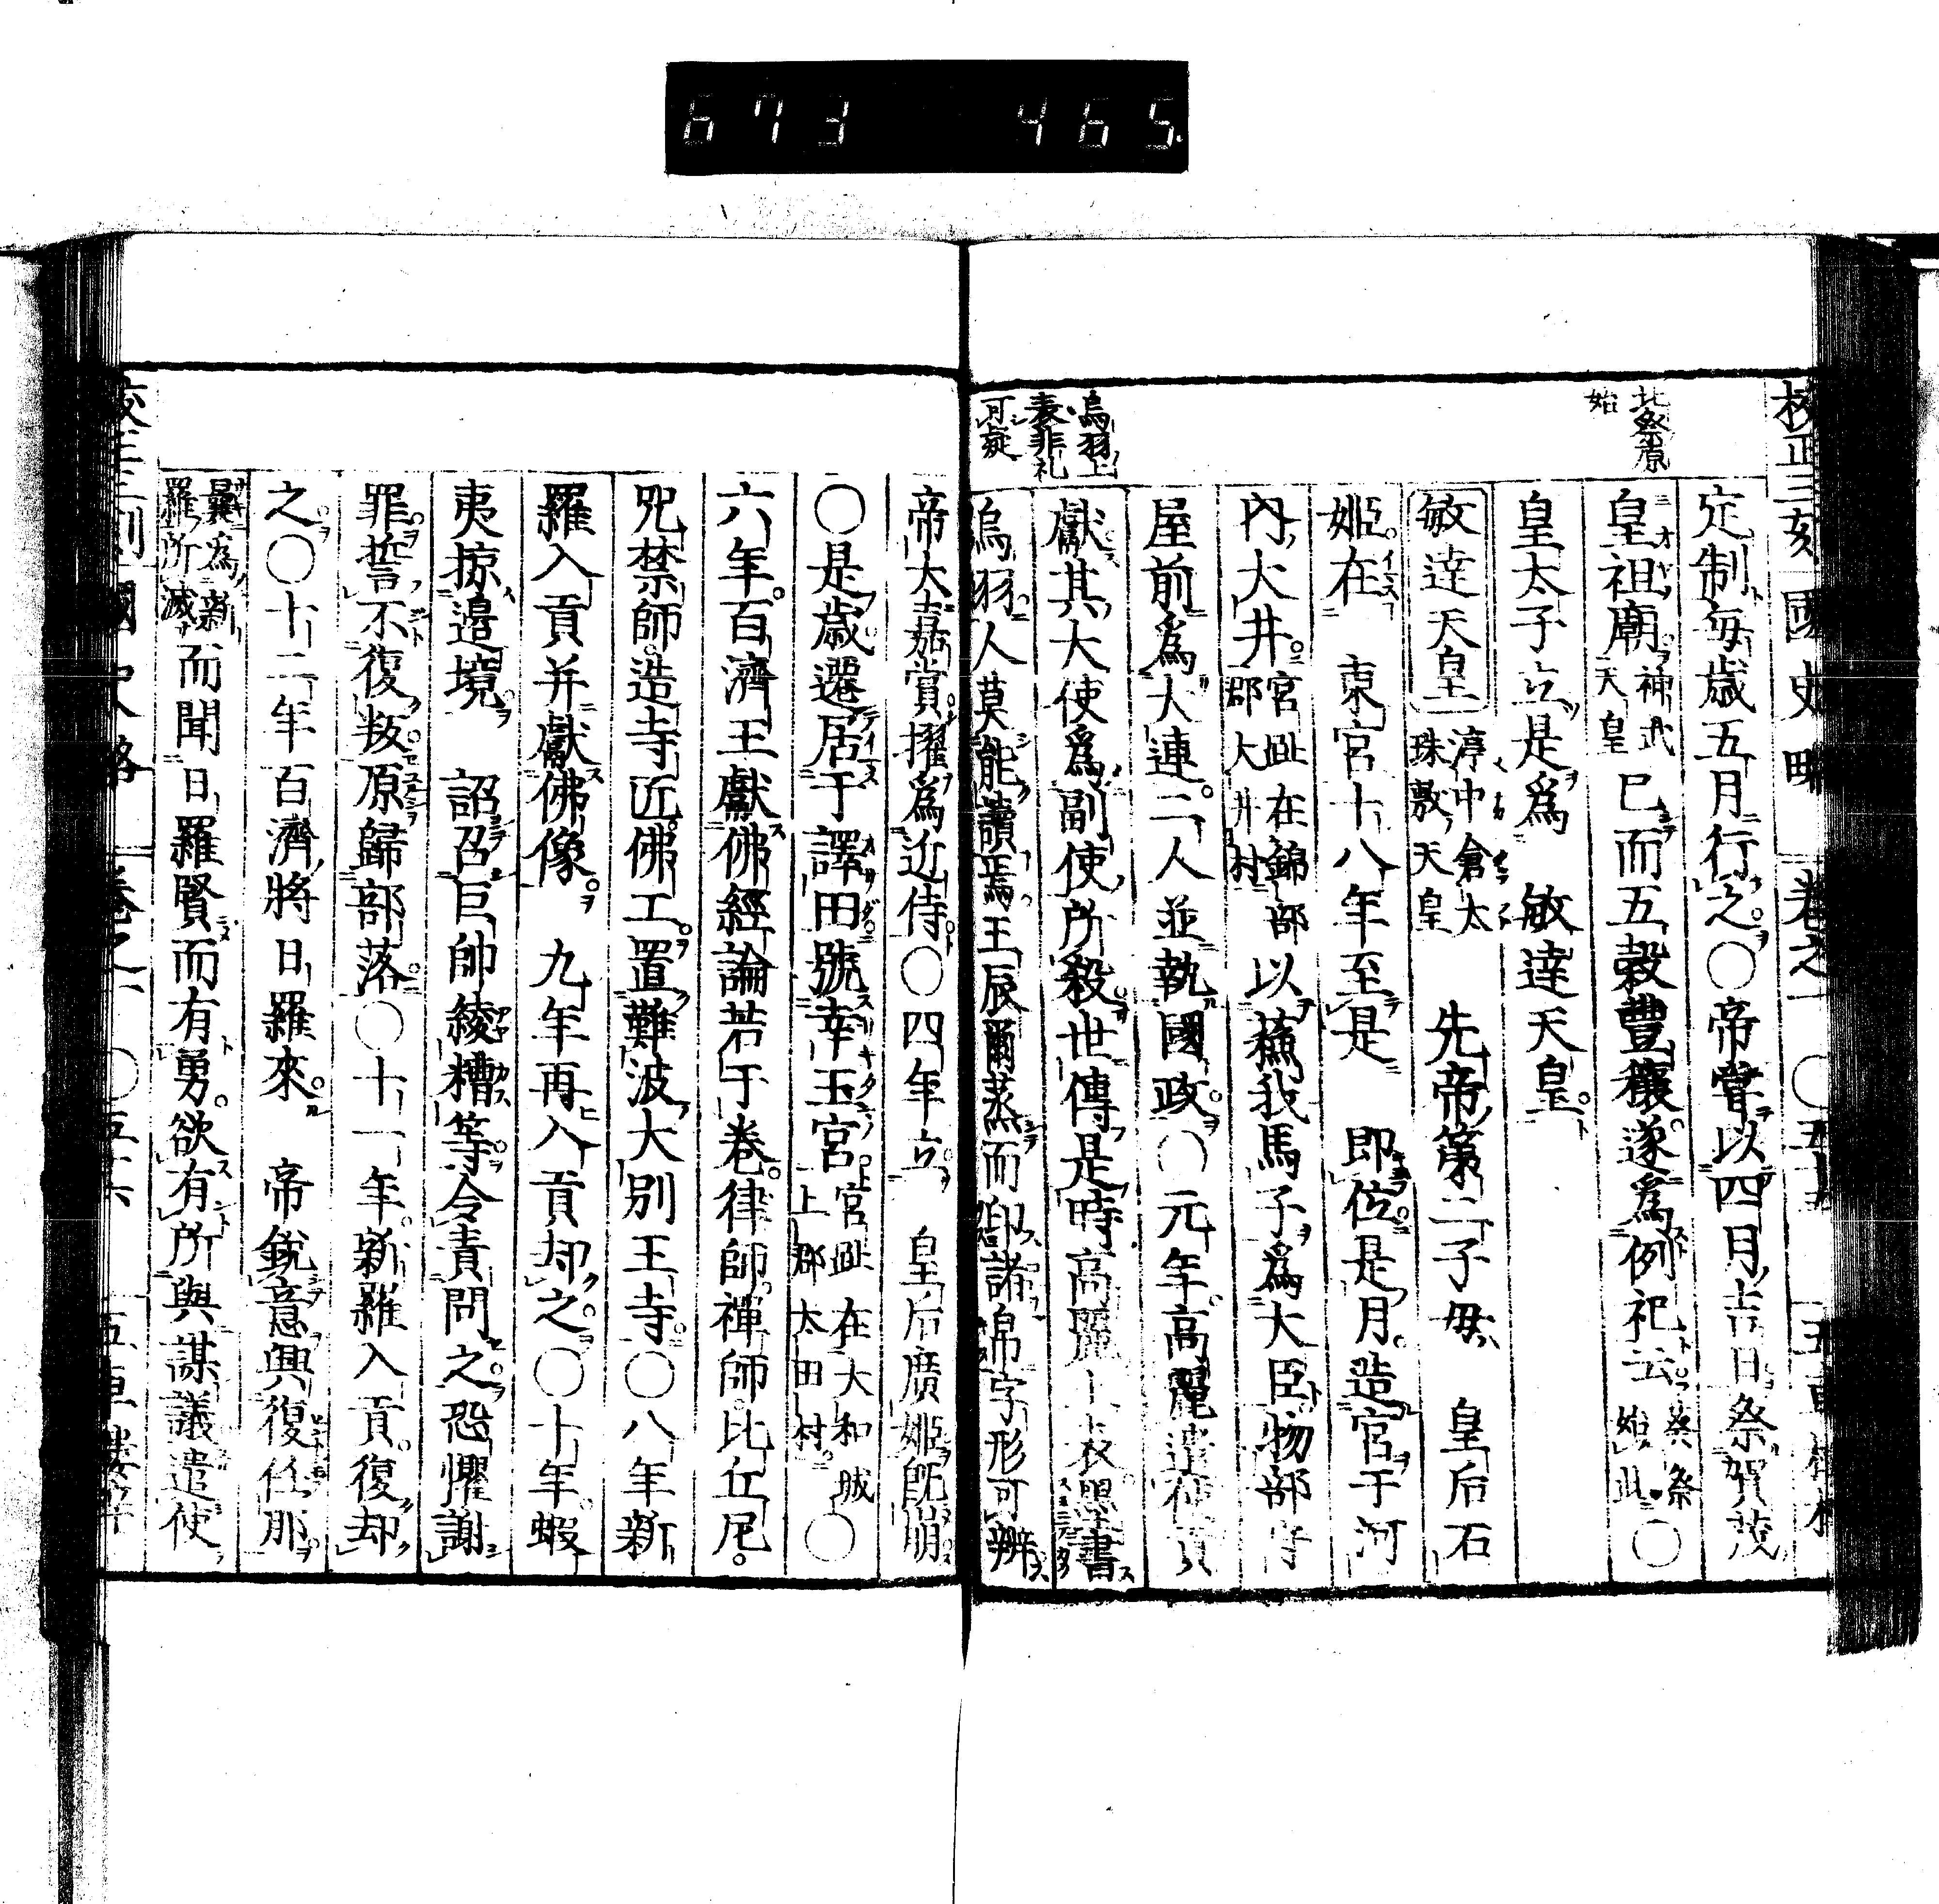 673 465.
校正三刻國史略 卷之一 ○五十五
此祭原
始
定制每歲五月行之○帝嘗以四月吉日祭賀茂
皇祖廟神武天皇已而五穀豐穰遂爲例祀云葵祭始此○
皇太子立是爲 敏達天皇
敏達天皇渟中倉太珠敷天皇 先帝第二子母 皇后石
姬在 東宮十八年至是 即位是月造宮于河
內大井宮趾在錦部郡大井村以蘇我馬子爲大臣物部守
屋前爲大連二人並執國政○元年高麗遣使貢
獻其大使爲副使所殺世傳是時高麗上表墨書
烏羽人莫能讀焉王辰爾蒸而印諸帛字形可辨
烏羽上
表非礼
可疑
帝大嘉賞擢爲近侍○四年立 皇后廣姬既崩
○是歲遷居于譯田號幸玉宮宮趾在大和城上郡太田村○
六年百濟王獻佛經論若干卷律師禪師比丘尼
咒禁師造寺匠佛工置難波大別王寺○八年新
羅入貢并獻佛像 九年再入貢却之○十年蝦
夷掠邊境 詔召巨帥綾糟等令責問之恐懼謝
罪誓不復叛原歸部落○十一年新羅入貢復却
之○十二年百濟將日羅來 帝銳意興復任那
曩爲新羅所滅而聞日羅賢而有勇欲有所與謀議遣使
國史略 卷之一 ○五十六